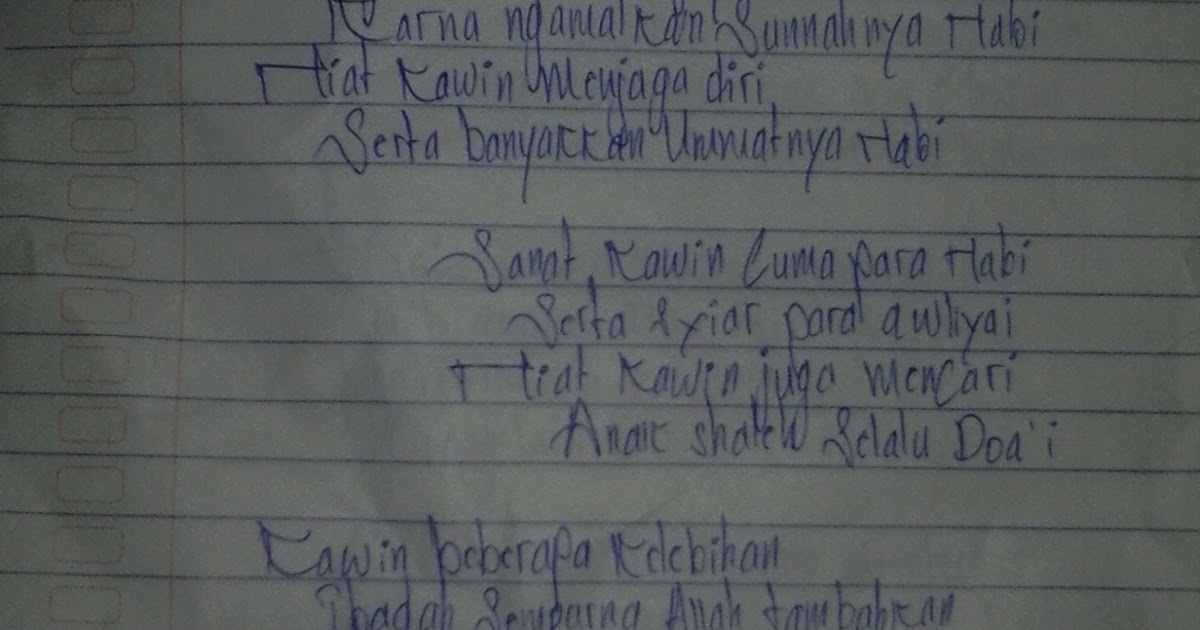 Karna ngamalkan Sunnahnya Nabi
Niat Kawin Menjaga diri,
Serta banyakkan Ummatnya Nabi
Sanat Kawin Cuma para Nabi
Serta Syiar para awliyai
Niat Kawin juga mencari
Anak shaleh Selalu Doa'i
Kawin beberapa Kelebihan
Ibadah Sempurna Allah tambahkan